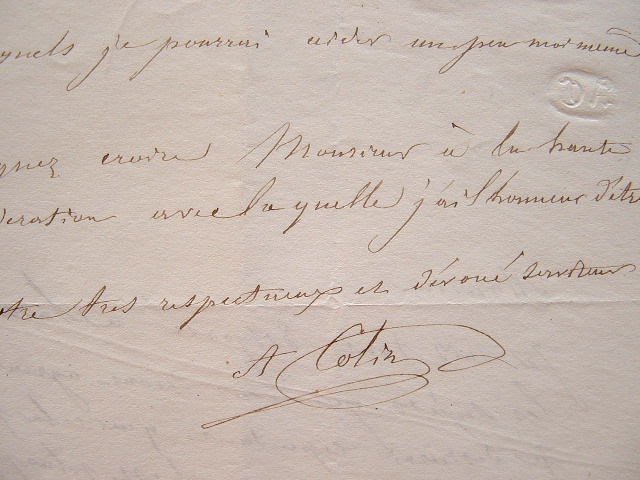 quels je pourrai aider un peu moi même
AC
gnez croire Monsieur à la haute
deration avec laquelle j'ai l'honneur d'etre
otre tres respectueux et dévoué serviteur
A Colin